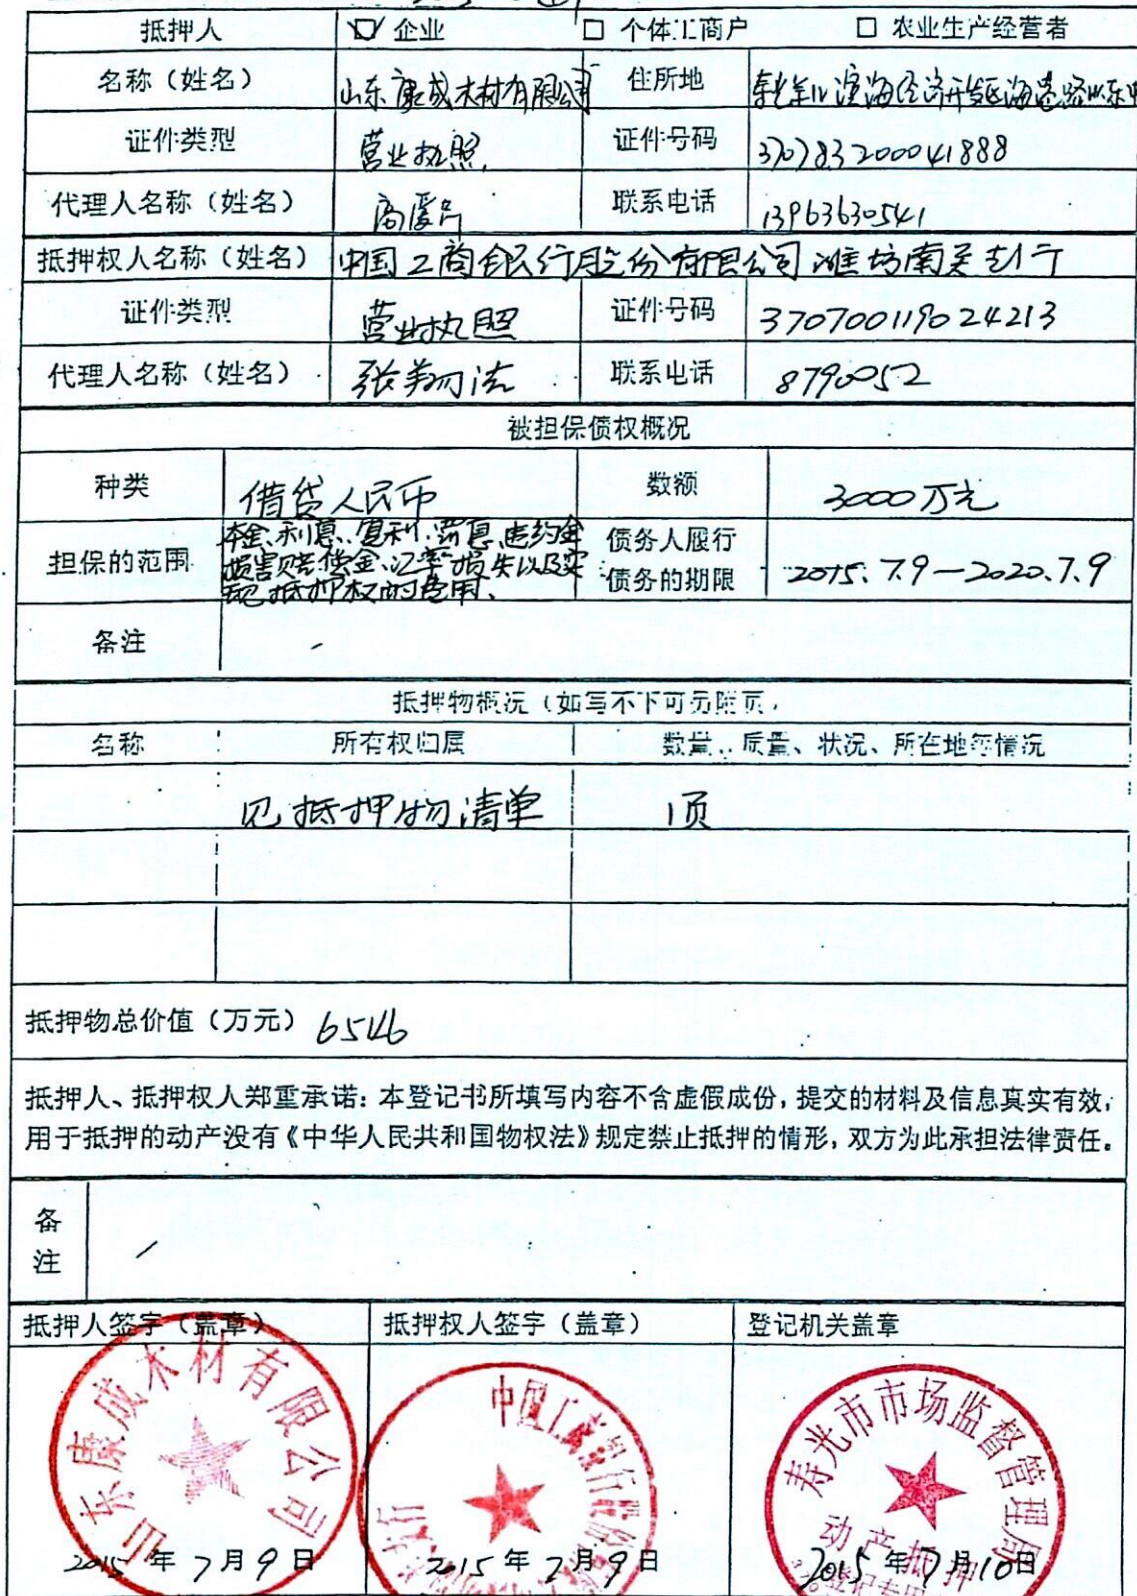 抵押人 ☑ 企业 □ 个体工商户 □ 农业生产经营者
名称（姓名） 山东康成木材有限公司 住所地 滨海经济开发区海港路
证件类型 营业执照 证件号码 370783200041888
代理人名称（姓名） 联系电话 13963630541
抵押权人名称（姓名） 中国工商银行股份有限公司潍坊南关支行
证件类型 营业执照 证件号码 370700119024213
代理人名称（姓名） 张 联系电话 8790052
被担保债权概况
种类 借贷人民币 数额 3000万元
担保的范围 本金、利息、复利、罚息、违约金 债务人履行
损害赔偿金、汇率损失以及实 债务的期限 2015.7.9—2020.7.9
现抵押权的费用、
备注 /
抵押物概况（如写不下可另附页）
名称 所有权归属 数量、质量、状况、所在地等情况
见抵押物清单 1页
抵押物总价值（万元） 6546
抵押人、抵押权人郑重承诺：本登记书所填写内容不含虚假成份，提交的材料及信息真实有效，
用于抵押的动产没有《中华人民共和国物权法》规定禁止抵押的情形，双方为此承担法律责任。
备注 /
抵押人签字（盖章） 抵押权人签字（盖章） 登记机关盖章
山东康成木材有限公司 中国工商银行股份 寿光市市场监督管理局
动产抵押
登记专用
2015年7月9日 2015年7月9日 2015年7月10日